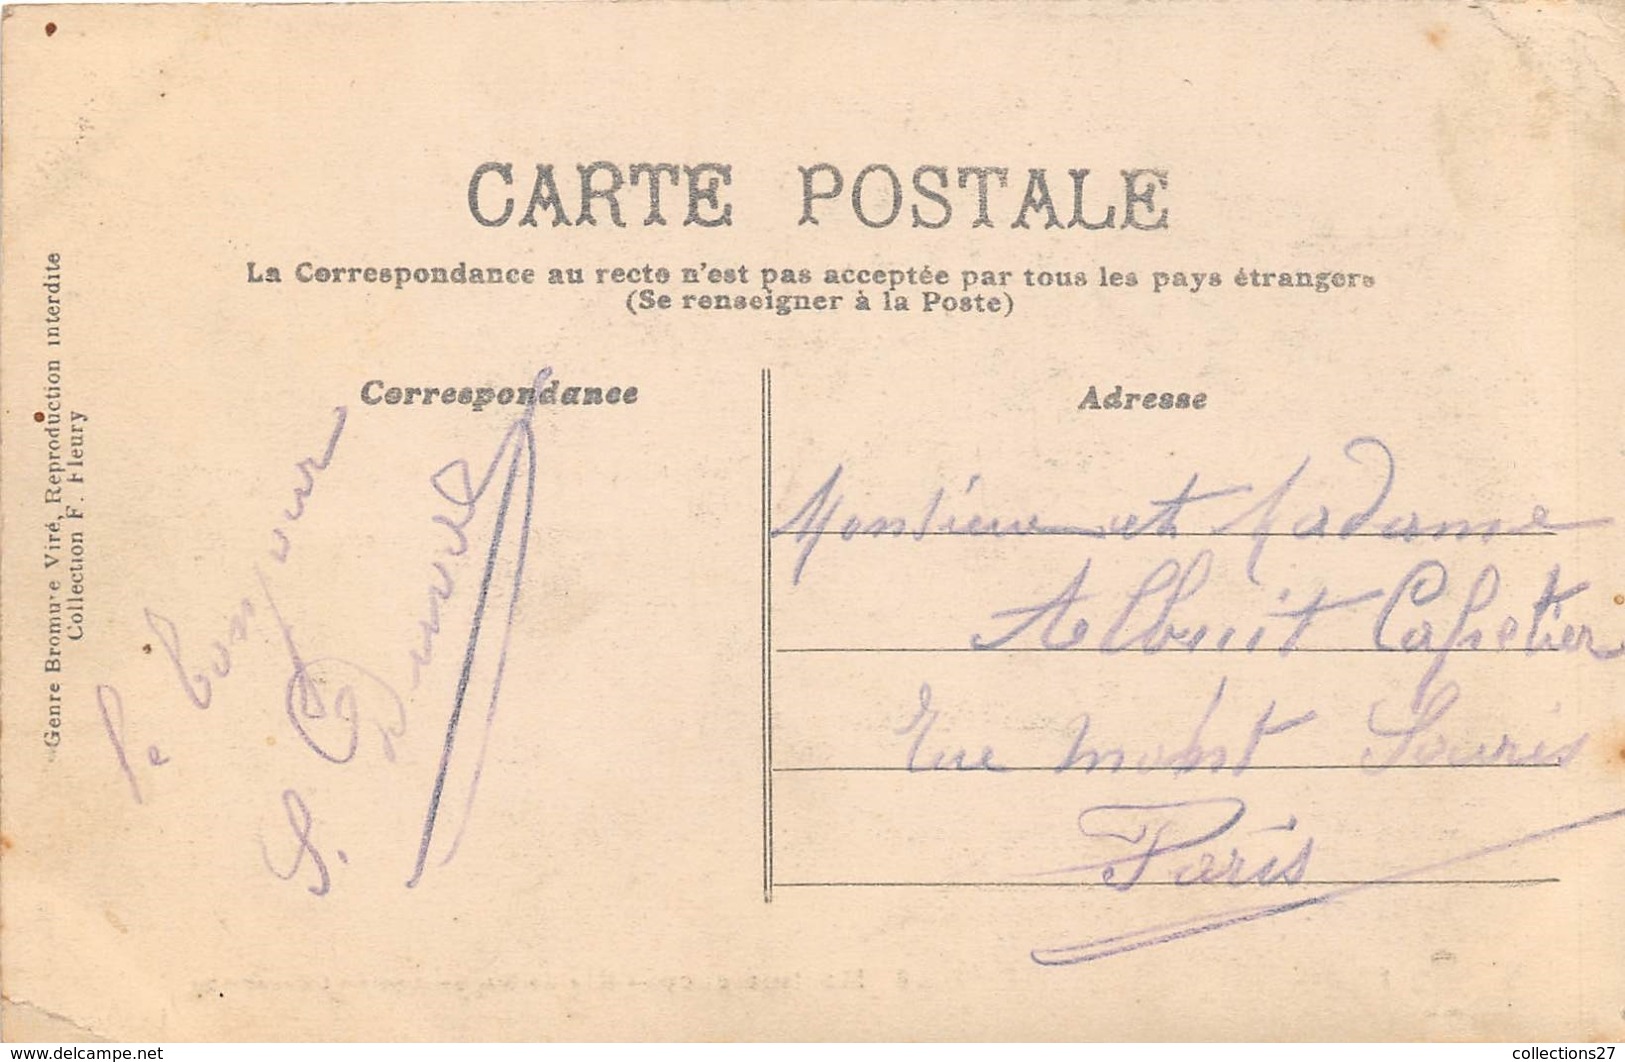 CARTE POSTALE
La Correspondance au recto n'est pas acceptée par tous les pays étrangers
(Se renseigner à la Poste)
Correspondance
Adresse
Genre Bromure Viré, Reproduction interdite
Collection F. Fleury
Le bonjour
S. Duval
Monsieur et Madame
Capetier
rue mont Souris
Paris
www.delcampe.net
collections27